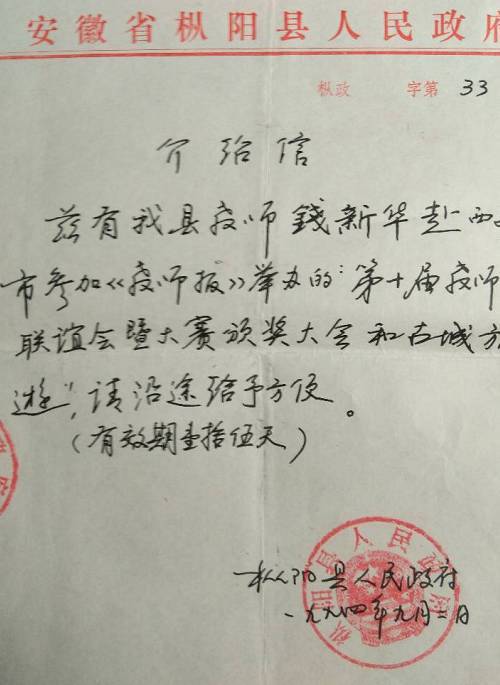 安徽省枞阳县人民政府
枞政 字第 33
介绍信
兹有我县教师錢新华赴西安
市参加《教师报》举办的“第十届教师
联谊会暨大赛颁奖大会和古城旅
遊”,请沿途给予方便。
(有效期壹拾伍天)
枞阳县人民政府
一九九四年九月二日
枞阳县人民政府